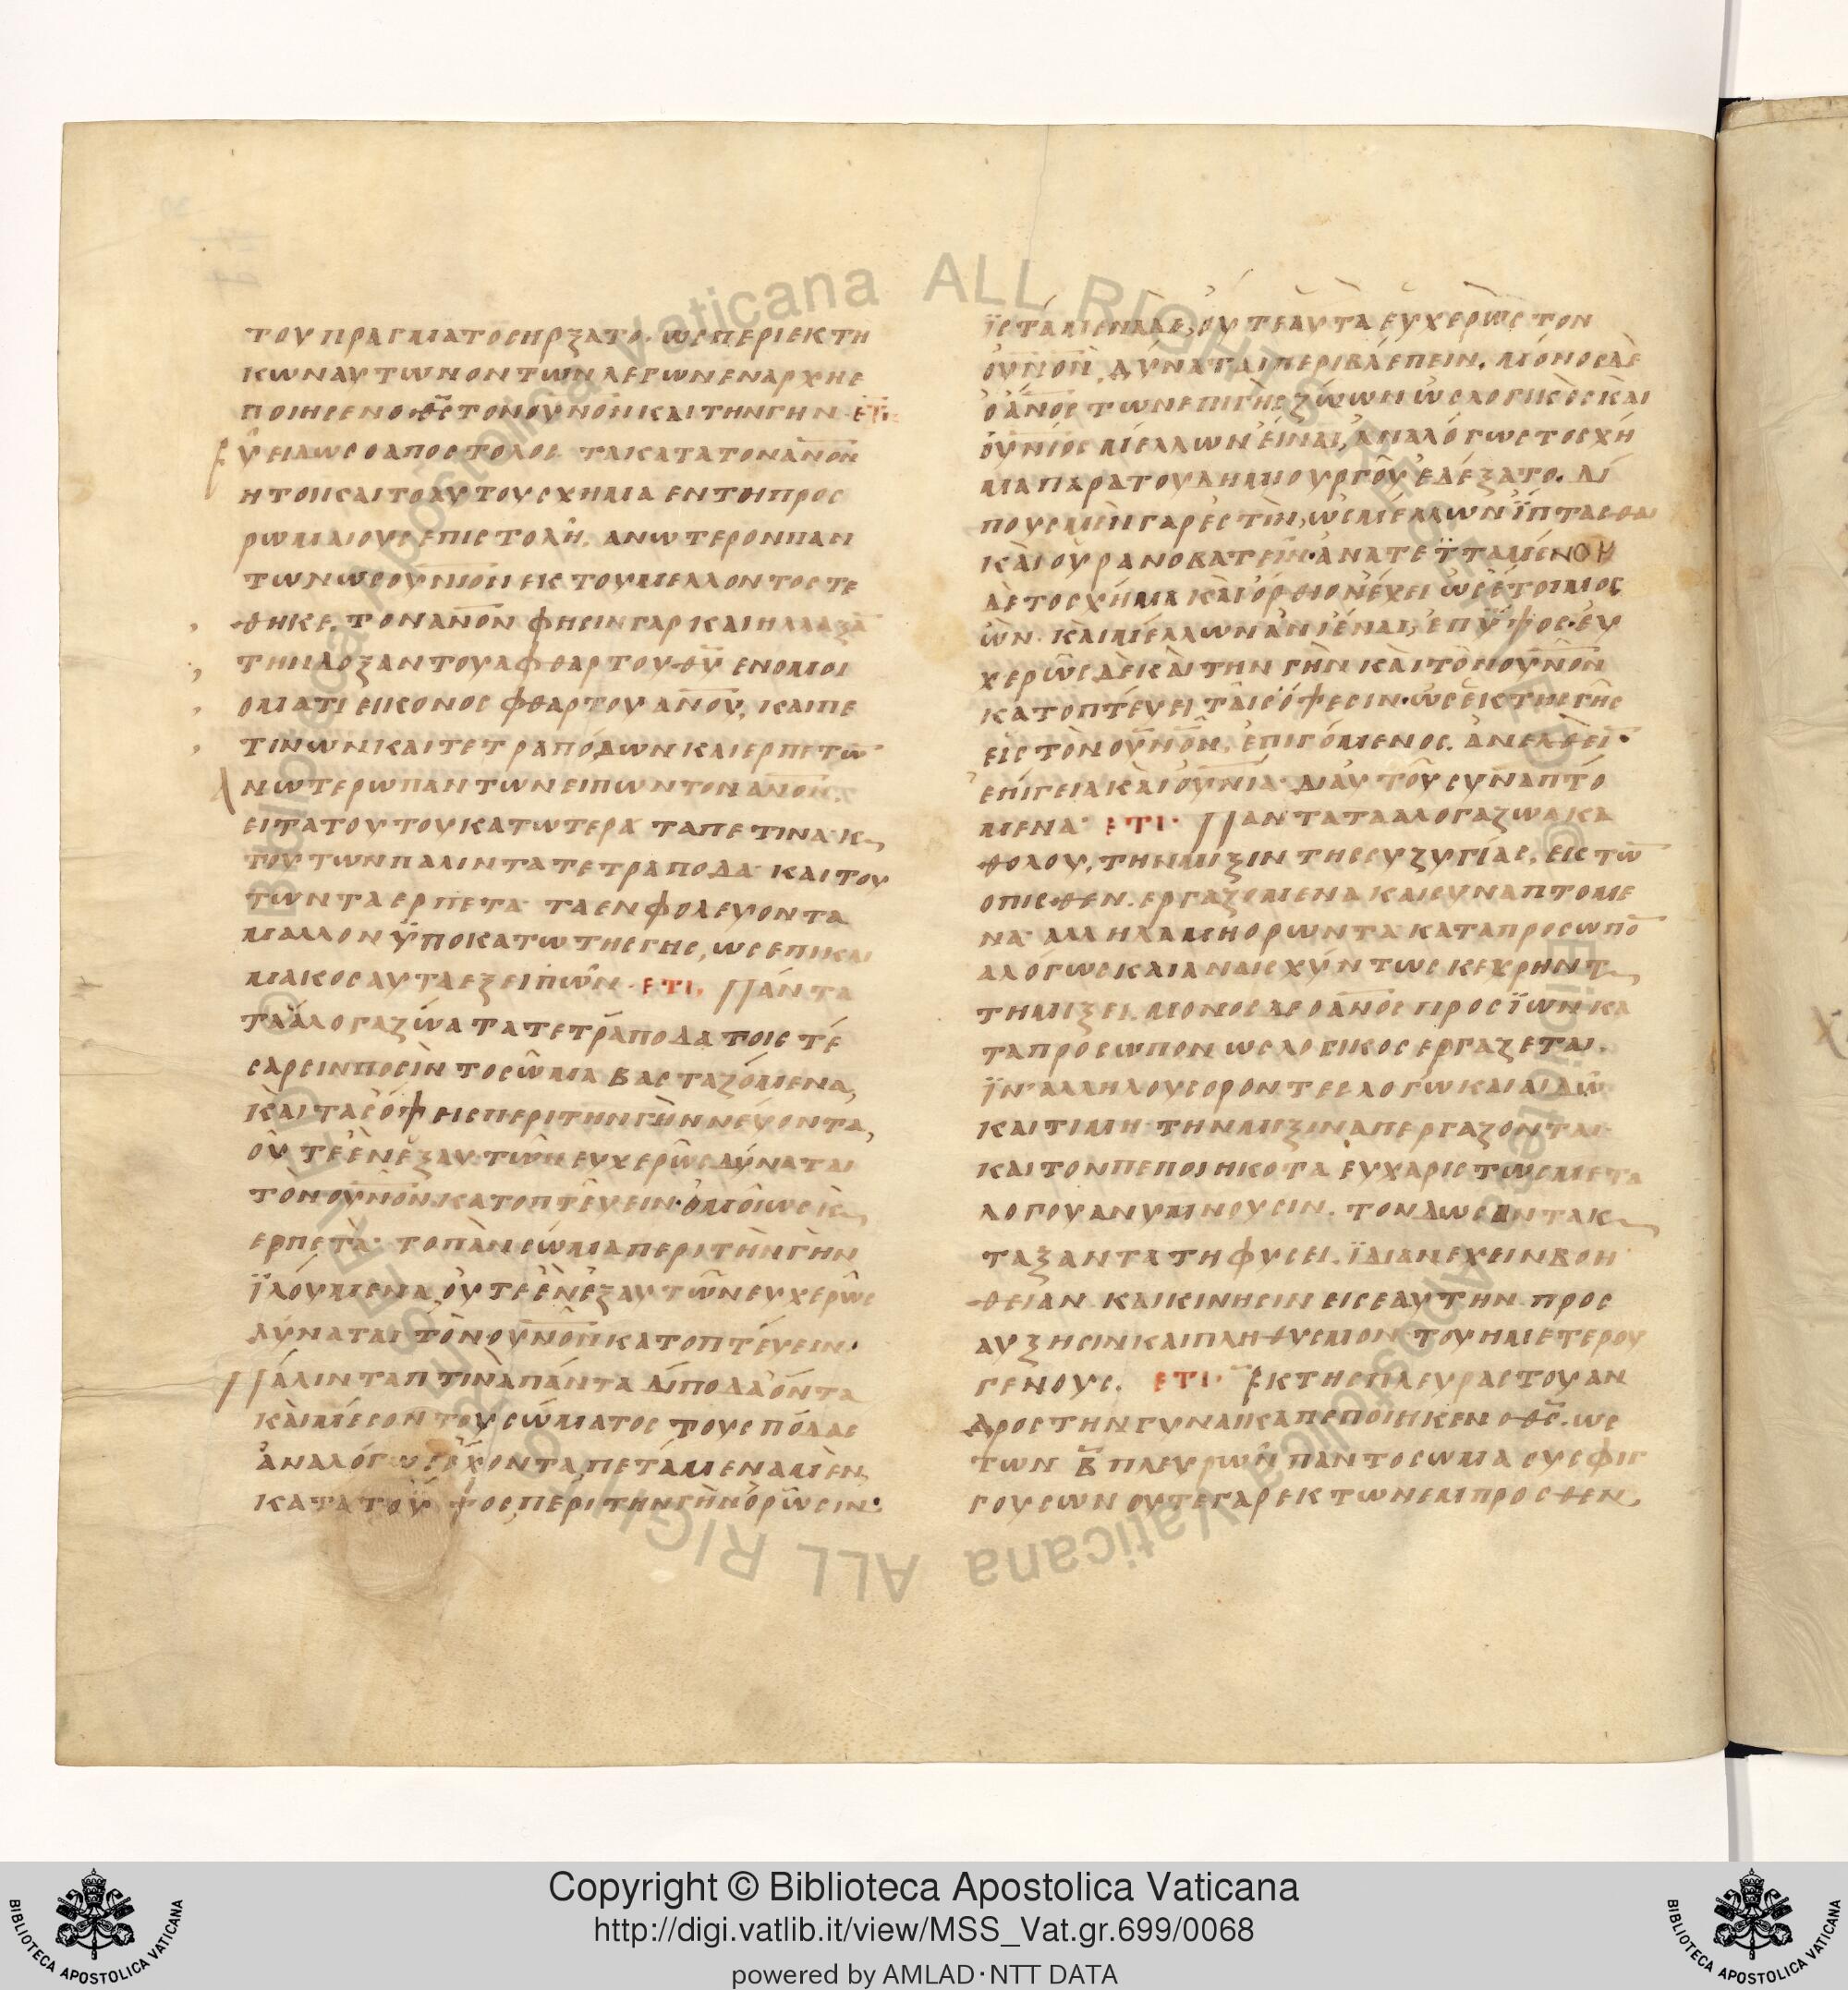 ΤΟΥ ΠΡΑΓΜΑΤΟΣ ΗΡΞΑΤΟ· ΩΣ ΠΕΡΙΕΚΤΗ
ΚΩΝ ΑΥΤΩΝ ΟΝΤΩΝ ΛΕΓΩΝ ΕΝ ΑΡΧΗΣ
ΠΟΙΗΣΕΝ Ο Θ̅Σ̅ ΤΟΝ ΟΥ̅Ν̅Ο̅Ν̅ ΚΑΙ ΤΗΝ ΓΗΝ· ΕΤΙ
ΥΕΙΔΩΣ Ο ΑΠΟΣΤΟΛΟΣ ΤΑ ΚΑΤΑ ΤΟΝ Α̅Ν̅Ο̅Ν̅
ΗΤΟΙ ΚΑΙ ΤΟ ΑΥΤΟΥ ΣΧΗΜΑ ΕΝ ΤΗ ΠΡΟΣ
ΡΩΜΑΙΟΥΣ ΕΠΙΣΤΟΛΗ· ΑΝΩΤΕΡΟΝ ΠΑΝ
ΤΩΝ ΩΣ ΟΥ̅Ν̅Ι̅Ο̅Ν̅ ΕΚ ΤΟΥ ΜΕΛΛΟΝΤΟΣ ΤΕ
ΘΗΚΕ, ΤΟΝ Α̅Ν̅Ο̅Ν̅ ΦΗΣΙΝ ΓΑΡ ΚΑΙ ΗΛΛΑΞΑ
ΤΗΝ ΔΟΞΑΝ ΤΟΥ ΑΦΘΑΡΤΟΥ Θ̅Υ̅ ΕΝ ΟΜΟΙ
ΟΜΑΤΙ ΕΙΚΟΝΟΣ ΦΘΑΡΤΟΥ Α̅Ν̅Ο̅Υ̅, ΚΑΙ ΠΕ
ΤΙΝΩΝ ΚΑΙ ΤΕΤΡΑΠΟΔΩΝ ΚΑΙ ΕΡΠΕΤΩ̅
ΝΩΤΕΡΩ ΠΑΝΤΩΝ ΕΙΠΩΝ ΤΟΝ Α̅Ν̅Ο̅Ν̅·
ΕΙΤΑ ΤΟΥΤΟΥ ΚΑΤΩΤΕΡΑ ΤΑ ΠΕΤΙΝΑ· Κ
ΤΟΥΤΩΝ ΠΑΛΙΝ ΤΑ ΤΕΤΡΑΠΟΔΑ· ΚΑΙ ΤΟΥ
ΤΩΝ ΤΑ ΕΡΠΕΤΑ· ΤΑ ΕΝΦΟΛΕΥΟΝΤΑ
ΜΑΛΛΟΝ ΫΠΟΚΑΤΩ ΤΗΣ ΓΗΣ, ΩΣ ΕΠΙ ΚΑΙ
ΜΑΚΟΣ ΑΥΤΑ ΕΞΕΙΠΩΝ· ΕΤΙ· ΠΑΝΤΑ
ΤΑ ΑΛΟΓΑ ΖΩΑ ΤΑ ΤΕΤΡΑΠΟΔΑ ΤΟΙΣ ΤΕ
ΣΑΡΣΙΝ ΠΟΣΙΝ ΤΟ ΣΩΜΑ ΒΑΣΤΑΖΟΜΕΝΑ,
ΚΑΙ ΤΑΣ ΟΨΕΙΣ ΠΕΡΙ ΤΗΝ ΓΗΝ ΝΕΥΟΝΤΑ,
ΟΥΤΕ ΕΝ ΕΞ ΑΥΤΩΝ ΕΥΧΕΡΩΣ ΔΥΝΑΤΑΙ
ΤΟΝ ΟΥ̅Ν̅Ο̅Ν̅ ΚΑΤΟΠΤΕΥΕΙΝ· ΟΜΟΙΩΣ Κ
ΕΡΠΕΤΑ· ΤΟ ΠΑΝ ΣΩΜΑ ΠΕΡΙ ΤΗΝ ΓΗΝ
ΪΛΟΥΜΕΝΑ ΟΥΤΕ ΕΝ ΕΞ ΑΥΤΩΝ ΕΥΧΕΡΩΣ
ΔΥΝΑΤΑΙ ΤΟΝ ΟΥ̅Ν̅Ο̅Ν̅ ΚΑΤΟΠΤΕΥΕΙΝ·
ΠΑΛΙΝ ΤΑ ΠΤΙΝΑ ΠΑΝΤΑ ΔΙΠΟΔΑ ΟΝΤΑ
ΚΑΙ ΜΕΣΟΝ ΤΟΥ ΣΩΜΑΤΟΣ ΤΟΥΣ ΠΟΔΑΣ
ΑΝΑΛΟΓΩΣ ΕΧΟΝΤΑ ΠΕΤΑΜΕΝΑ ΜΕΝ
ΚΑΤΑ ΤΟ ΫΨΟΣ ΠΕΡΙ ΤΗΝ ΓΗΝ ΟΡΩΣΙΝ·
ΪΣΤΑΜΕΝΑ ΔΕ, ΟΥΤΕ ΑΥΤΑ ΕΥΧΕΡΩΣ ΤΟΝ
ΟΥ̅Ν̅Ο̅Ν̅ ΔΥΝΑΤΑΙ ΠΕΡΙΒΛΕΠΕΙΝ. ΜΟΝΟΣ ΔΕ
Ο Α̅Ν̅Ο̅Σ̅ ΤΩΝ ΕΠΙ ΓΗΣ ΖΩΩΝ ΩΣ ΛΟΓΙΚΟΣ ΚΑΙ
ΟΥ̅Ν̅Ι̅Ο̅Σ̅ ΜΕΛΛΩΝ ΕΙΝΑΙ, ΑΝΑΛΟΓΩΣ ΤΟ ΣΧΗ
ΜΑ ΠΑΡΑ ΤΟΥ ΔΗΜΙΟΥΡΓΟΥ ΕΔΕΞΑΤΟ. ΔΙ
ΠΟΥΣ ΜΕΝ ΓΑΡ ΕΣΤΙΝ, ΩΣ ΜΕΛΛΩΝ ΪΠΤΑΣΘΑΙ
ΚΑΙ ΟΥΡΑΝΟΒΑΤΕΙΝ· ΑΝΑΤΕΪΤΑΜΕΝΟΝ
ΔΕ ΤΟ ΣΧΗΜΑ ΚΑΙ ΟΡΘΙΟΝ ΕΧΕΙ ΩΣ ΕΤΟΙΜΟΣ
ΩΝ ΚΑΙ ΜΕΛΛΩΝ ΑΝΙΕΝΑΙ, ΕΠ ΫΨΟΣ· ΕΥ
ΧΕΡΩΣ ΔΕ ΚΑΙ ΤΗΝ ΓΗΝ ΚΑΙ ΤΟΝ ΟΥ̅Ν̅Ο̅Ν̅
ΚΑΤΟΠΤΕΥΕΙ ΤΑΙΣ ΟΨΕΣΙΝ· ΩΣ ΕΚ ΤΗΣ ΓΗΣ
ΕΙΣ ΤΟΝ ΟΥ̅Ν̅Ο̅Ν̅, ΕΠΙΓΟΜΕΝΟΣ. ΑΝΕΛΘΕΙ̅·
ΕΠΙΓΕΙΑ ΚΑΙ ΟΥ̅Ν̅Ι̅Α̅· ΔΙ ΑΥΤΟΥ ΣΥΝΑΠΤΟ
ΜΕΝΑ· ΕΤΙ· ΠΑΝΤΑ ΤΑ ΑΛΟΓΑ ΖΩΑ ΚΑ
ΘΟΛΟΥ, ΤΗΝ ΜΙΞΙΝ ΤΗΣ ΣΥΖΥΓΙΑΣ, ΕΚ ΤΩ̅
ΟΠΙΣΘΕΝ. ΕΡΓΑΖΟΜΕΝΑ ΚΑΙ ΣΥΝΑΠΤΟΜΕ
ΝΑ· ΑΛΛΗΛΑ ΜΗ ΟΡΩΝΤΑ ΚΑΤΑ ΠΡΟΣΩΠΟ̅
ΑΛΟΓΩΣ ΚΑΙ ΑΝΑΙΣΧΥΝΤΩΣ ΚΕΧΡΗΝΤ
ΤΗ ΜΙΞΕΙ. ΜΟΝΟΣ ΔΕ Ο Α̅Ν̅Ο̅Σ̅ ΠΡΟΣΪΩΝ ΚΑ
ΤΑ ΠΡΟΣΩΠΟΝ ΩΣ ΛΟΓΙΚΟΣ ΕΡΓΑΖΕΤΑΙ.
ΪΝ ΑΛΛΗΛΟΥΣ ΟΡΟΝΤΕΣ ΛΟΓΩ ΚΑΙ ΑΙΔΩ
ΚΑΙ ΤΙΜΗ· ΤΗΝ ΜΙΞΙΝ ΑΠΕΡΓΑΖΟΝΤΑΙ
ΚΑΙ ΤΟΝ ΠΕΠΟΙΗΚΟΤΑ ΕΥΧΑΡΙΣΤΩΣ ΜΕΤΑ
ΛΟΓΟΥ ΑΝΥΜΝΟΥΣΙΝ. ΤΟΝ ΔΩΣΑΝΤΑ Κ
ΤΑΞΑΝΤΑ ΤΗ ΦΥΣΕΙ. ΪΔΙΑΝ ΕΧΕΙΝ ΒΟΗ
ΘΕΙΑΝ ΚΑΙ ΚΙΝΗΣΙΝ ΕΙΣ ΕΑΥΤΗΝ ΠΡΟΣ
ΑΥΞΗΣΙΝ ΚΑΙ ΠΛΗΘΥΣΜΟΝ ΤΟΥ ΗΜΕΤΕΡΟΥ
ΓΕΝΟΥΣ. ΕΤΙ· ΕΚ ΤΗΣ ΠΛΕΥΡΑΣ ΤΟΥ ΑΝ
ΔΡΟΣ ΤΗΝ ΓΥΝΑΙΚΑ ΠΕΠΟΙΗΚΕΝ Ο Θ̅Σ̅. ΩΣ
ΤΩΝ Β̅ ΠΛΕΥΡΩΝ ΠΑΝ ΤΟ ΣΩΜΑ ΣΥΣΦΙΓ
ΓΟΥΣΩΝ ΟΥΤΕ ΓΑΡ ΕΚ ΤΩΝ ΕΜΠΡΟΣΘΕΝ,
Copyright © Biblioteca Apostolica Vaticana
http://digi.vatlib.it/view/MSS_Vat.gr.699/0068
powered by AMLAD·NTT DATA
BIBLIOTECA APOSTOLICA VATICANA
BIBLIOTECA APOSTOLICA VATICANA